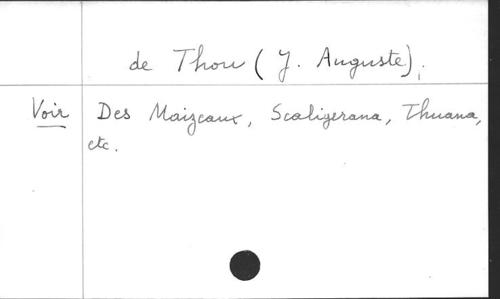 de Thou (J. Auguste).
Voir Des Maizeaux, Scaligerana, Thuana,
etc.